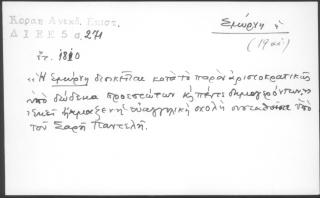 Κοραη Ανεκδ. Επιστ.
Δ Ι Ε Ε 5 σ. 271
Σμύρνη
(19 αἰ)
ἔτ. 1810
«Ἡ Σμύρνη διοικεῖται κατὰ τὸ παρὸν ἀριστοκρατικῶς
ὑπὸ δώδεκα προεστώτων κ̣ πέντε δημογερόντων,
ἐκεῖ ἤκμαζεν ἡ εὐαγγελικὴ σχολὴ συσταθεῖσα ὑπὸ
τοῦ Σαρῆ Παντελῆ.